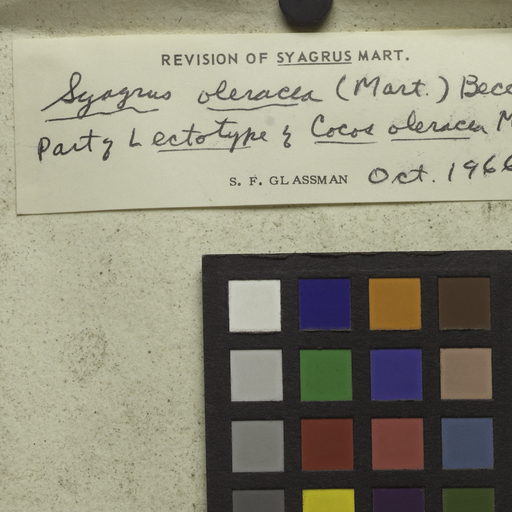 REVISION OF SYAGRUS MART.
Syagrus oleracea (Mart.) Becc
Part of Lectotype of Cocos oleracea M
S. F. GLASSMAN Oct. 1966